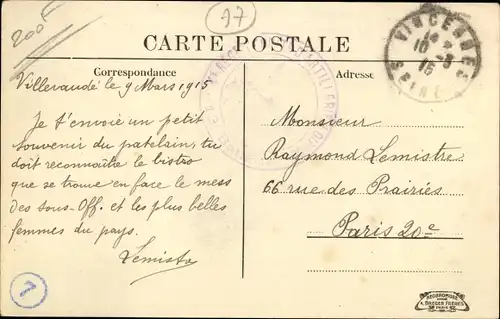 200F
97
CARTE POSTALE
VINCENNES
SEINE
Correspondance
Adresse
Villevaudé le 9 Mars 1915
Je t'envoie un petit
souvenir du patelain, tu
doit reconnaître le bistro
que se trouve en face le mess
des sous-Off. et les plus belles
femmes du pays.
Lemistre
Monsieur
Raymond Lemistre
66 rue des Prairiés
Paris 20e
7
REPRODUCTIONS
A. BREGER FRÈRES
PARIS